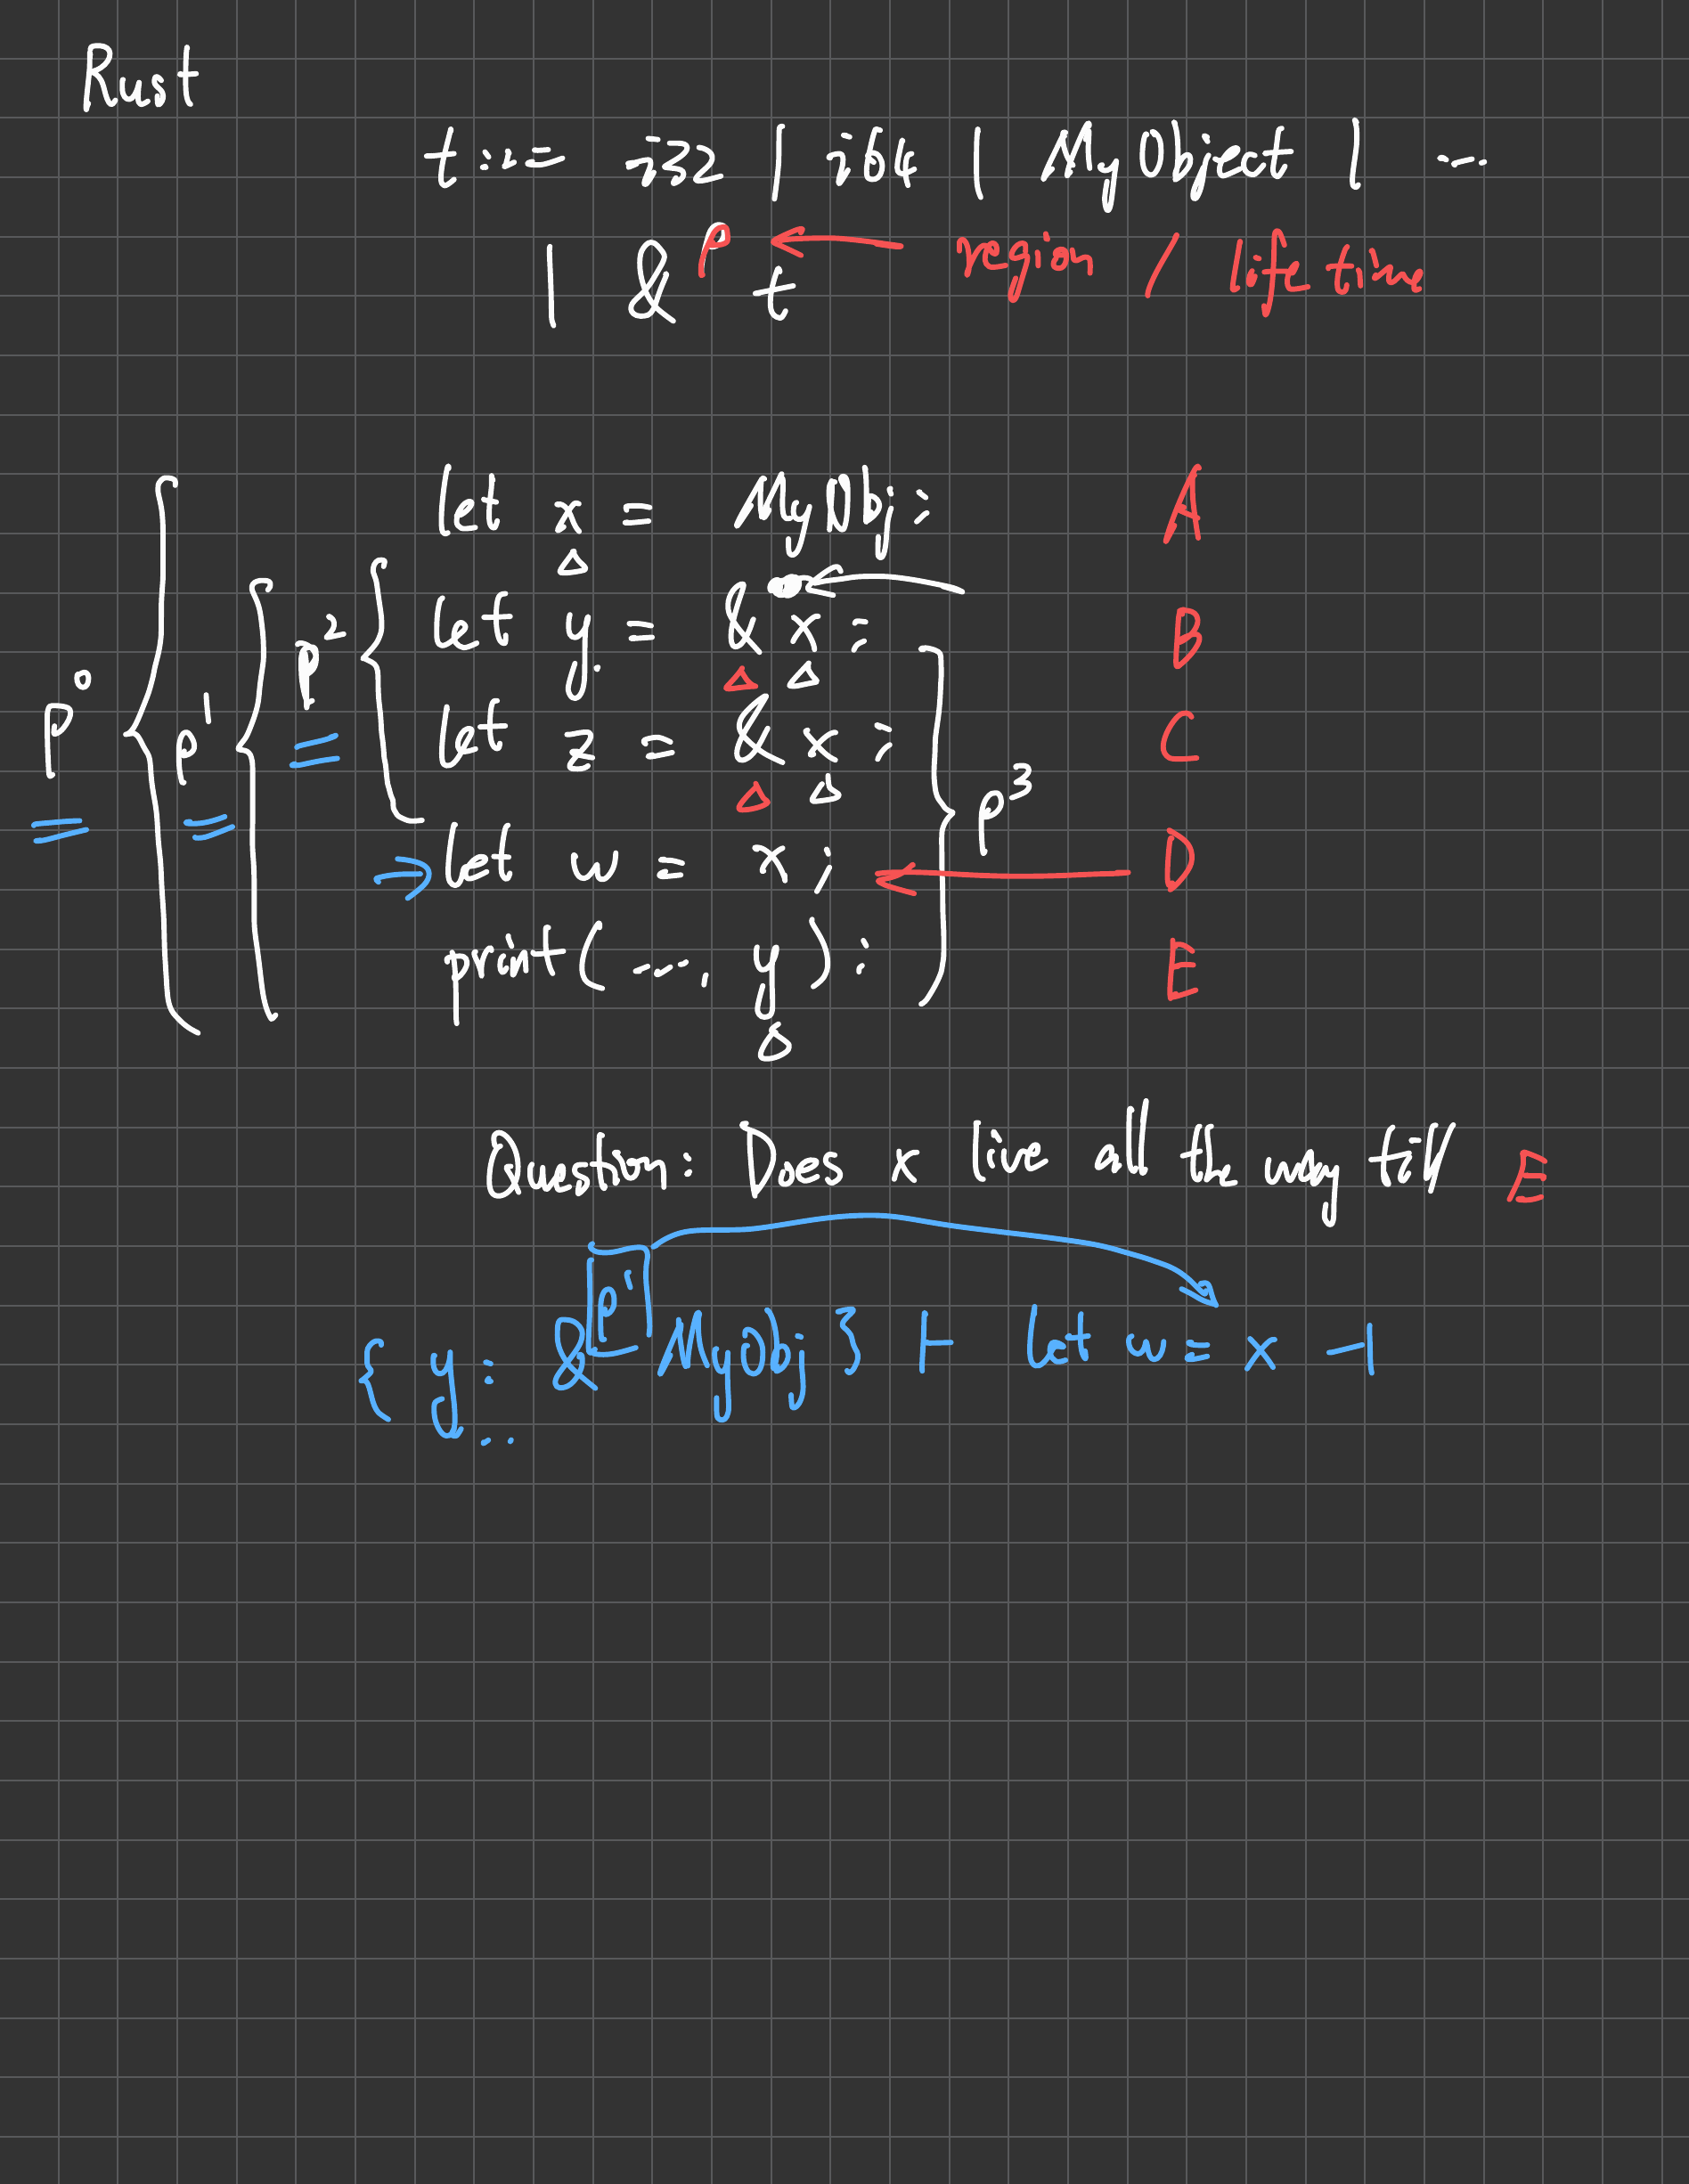 Rust
t ::= i32 | i64 | MyObject | ...
| &ρ t ← region / lifetime
let x = MyObj; A
let y = & x; B
let z = & x; C
let w = x; D
print(..., y); E
ρ0
ρ1
ρ2
ρ3
Question: Does x live all the way till E
{ y: &ρ1 MyObj } ⊢ let w = x ⊣